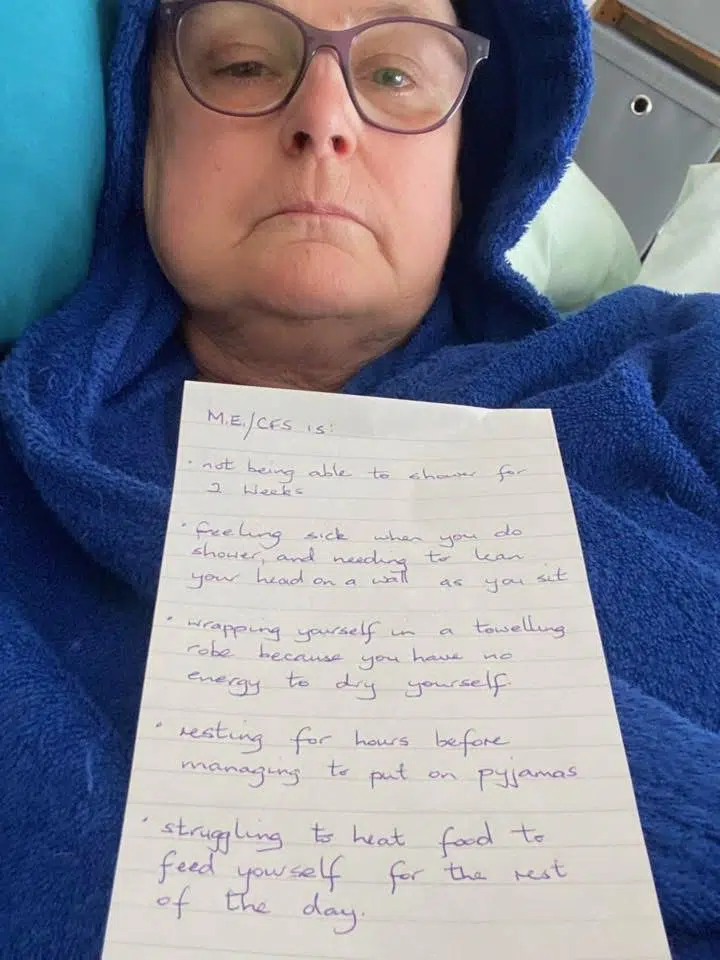 M.E./CFS is:
· not being able to shower for
2 weeks
· feeling sick when you do
shower, and needing to lean
your head on a wall as you sit
· wrapping yourself in a towelling
robe because you have no
energy to dry yourself.
· resting for hours before
managing to put on pyjamas
· struggling to heat food to
feed yourself for the rest
of the day.